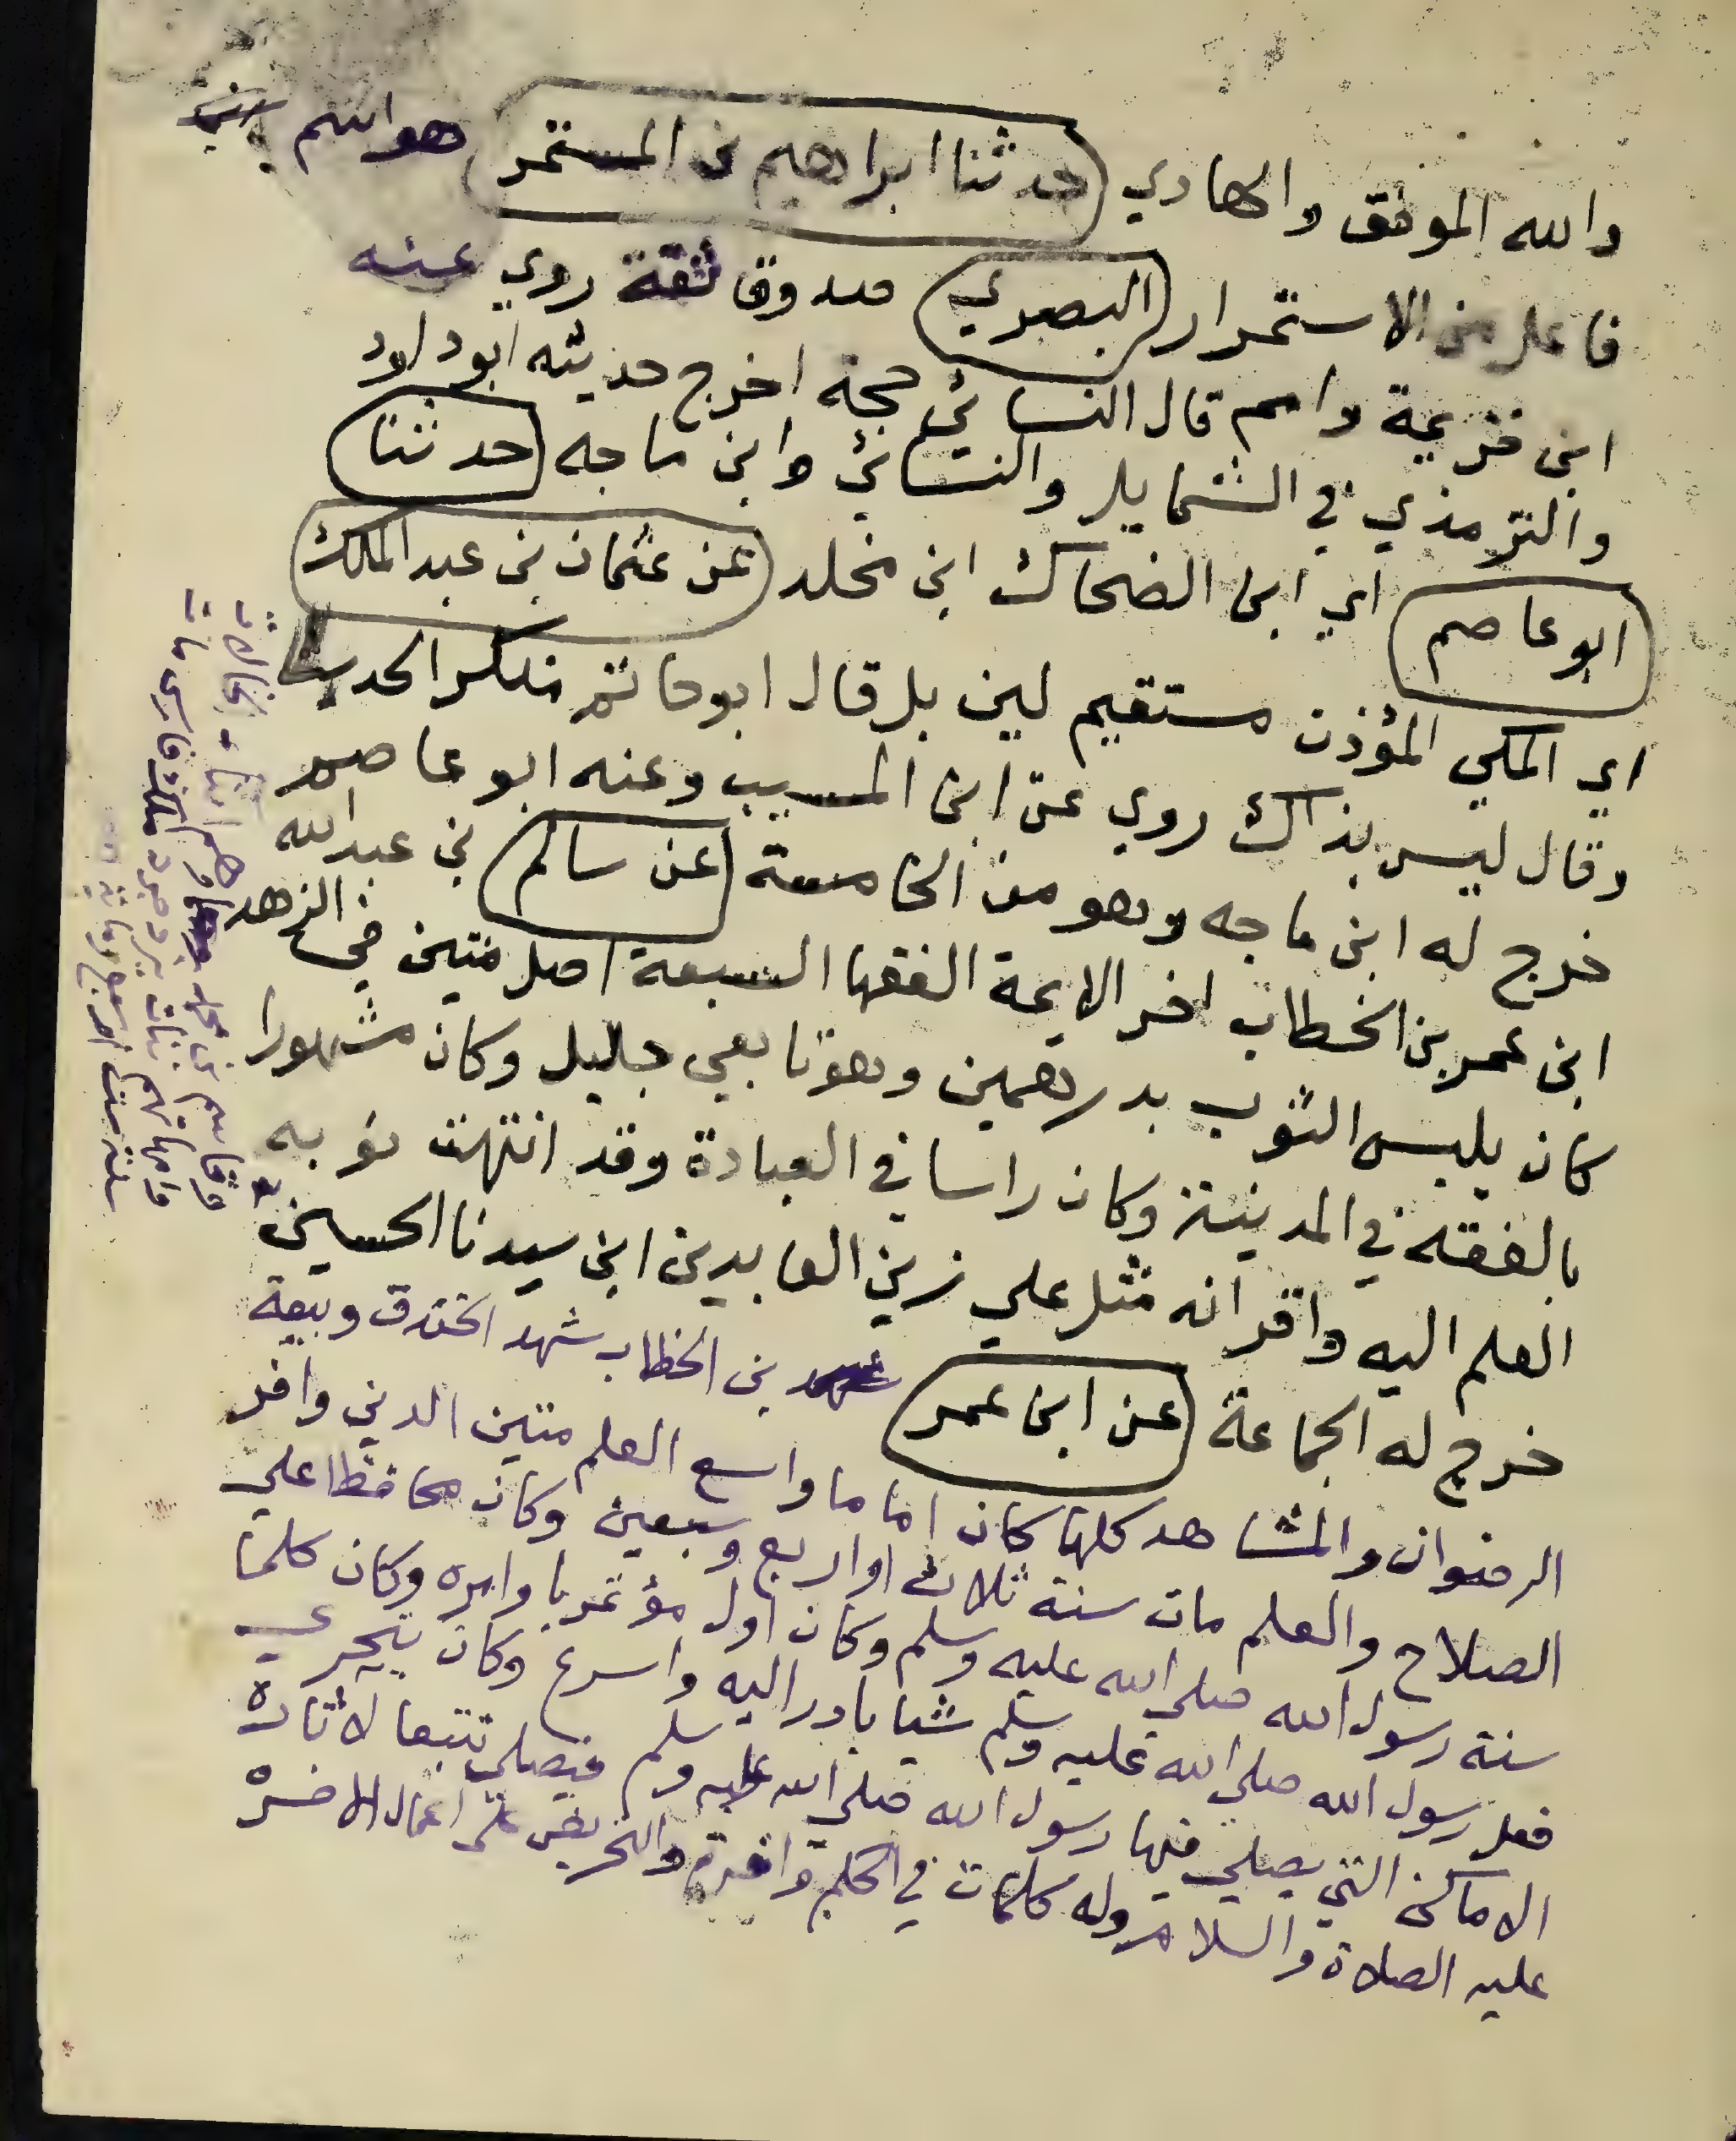 والله الموفق والهادي (حدثنا ابراهيم بن المستمر) هو اسم
فاعل من الاستمرار (البصري) صدوق ثقة روي عنه
ابن خزيمة وامم قال النسائي حجة اخرج حديثه ابوداود
والترمذي في الشمايل والنسائي وابن ماجه (حدثنا
ابو عاصم) اي ابن الضحاك ابن مخلد (عن عثمان بن عبد الملك)
اي المكي المؤذن مستقيم لين بل قال ابوحاتم منكر الحديث
وقال ليس بذاك روي عن ابن المسيب وعنه ابو عاصم
خرج له ابن ماجه وهو من الخامسة (عن سالم) بن عبد الله
ابن عمر بن الخطاب اخر الايمة الفقها السبعة اصل متين في الزهد
كان يلبس الثوب بدرهمين وهو تابعي جليل وكان مشهورا
بالفقه في المدينة وكان راسا في العبادة وقد انتهت نوبه
العلم اليه واقرانه مثل علي زين العابدين ابن سيدنا الحسين
خرج له الجماعة (عن ابن عمر) بن الخطاب شهد الخندق وبيعة
الرضوان والمشاهد كلها كان اماما واسع العلم متين الدين وافر
الصلاح والعلم مات سنة ثلاث او اربع وسبعين وكان محافظا علي
سنة رسول الله صلي الله عليه وسلم وكان اول مؤتمر باوامره وكان كلما
فعل رسول الله صلي الله عليه وسلم شيا بادر اليه واسرع وكان يتحري
الاماكن التي يصلي فيها رسول الله صلي الله عليه وسلم فيصلي تتبعا لاثاره
عليه الصلاة والسلام وله كلمات في الحكم وافرة والتحريض علي اعمال الاخرة
وقاسم بن محمد
وامهاتهم بنات يزدجرد ملك فارس